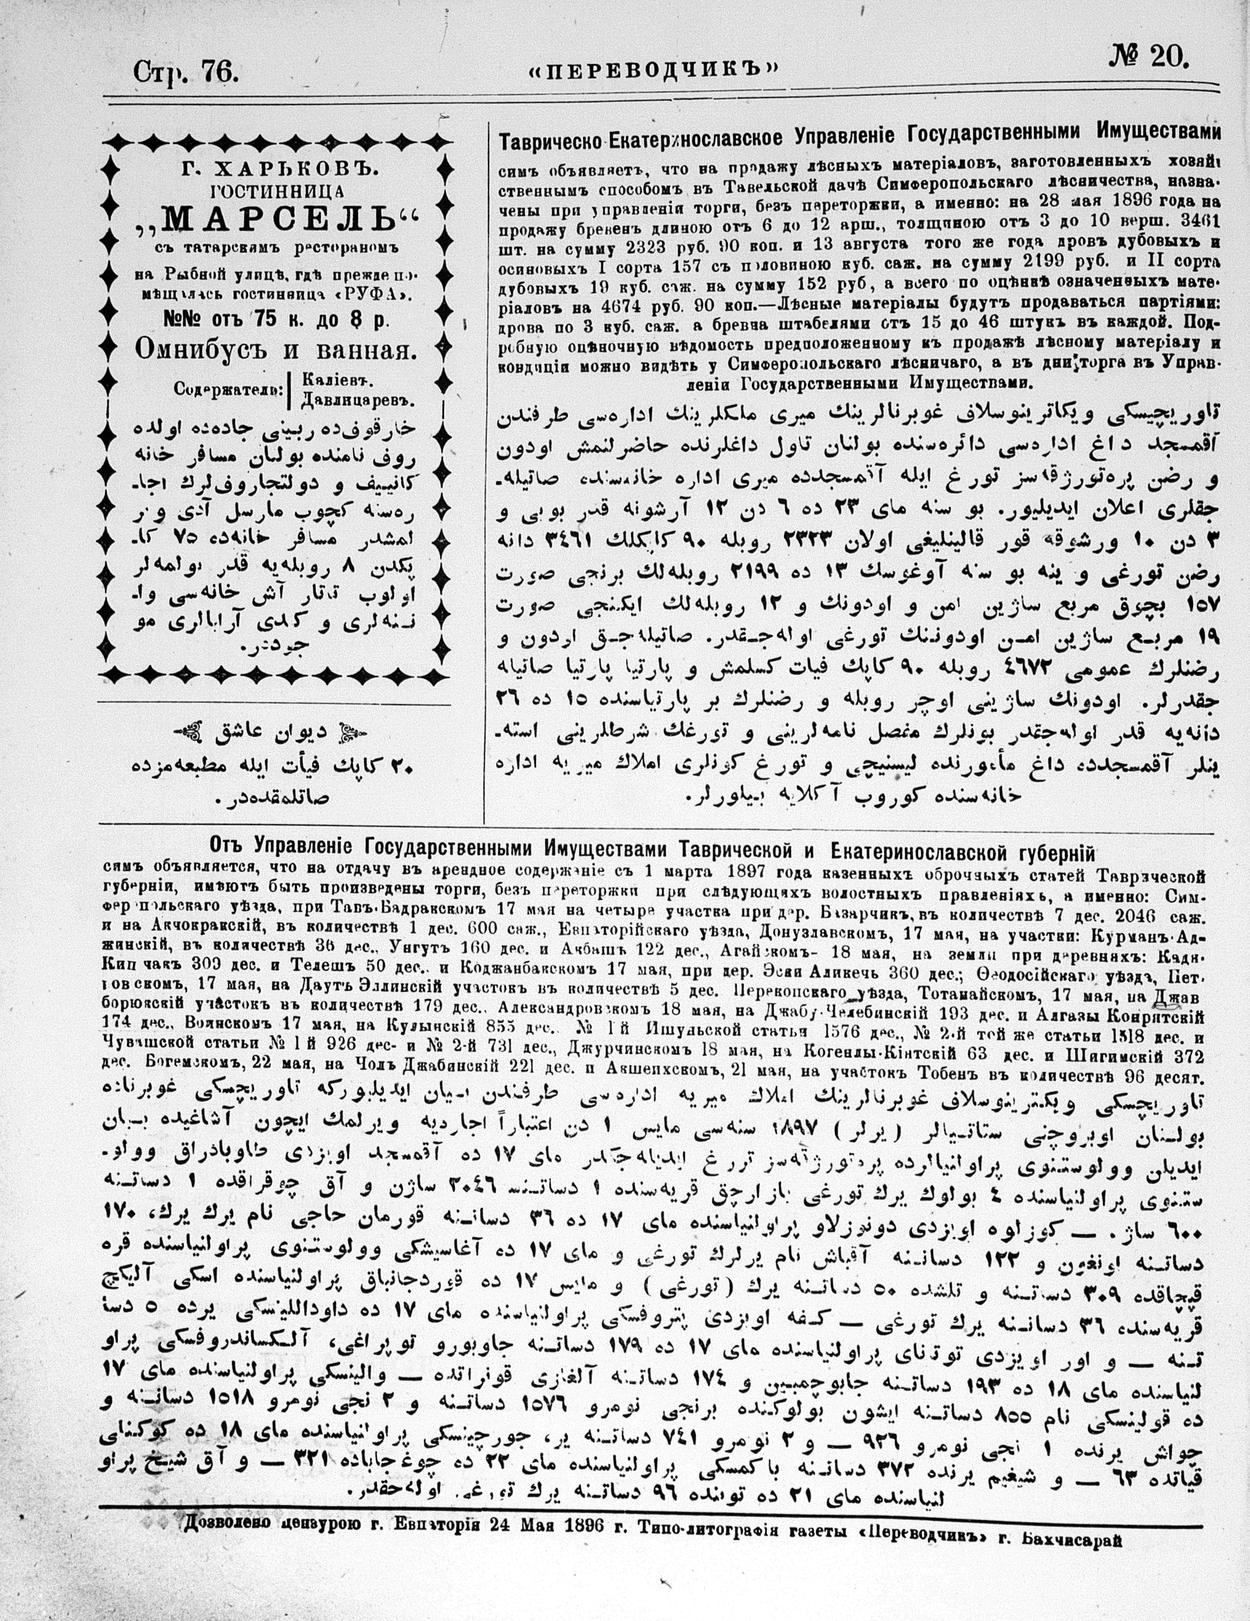 Стр. 76.
«ПЕРЕВОДЧИКЪ»
№ 20.
Г. ХАРЬКОВЪ.
ГОСТИННИЦА
„МАРСЕЛЬ“
съ татарскимъ рестораномъ
на Рыбной улицѣ, гдѣ прежде по-
мѣщалась гостинница «РУФА».
№№ отъ 75 к. до 8 р.
Омнибусъ и ванная.
Содержатели:
Каліевъ.
Давлицаревъ.
خارقوف‌ده ربینی جاده‌ده اولده
روف نامنده بولنان مسافر خانه
كانییف و دولتجاروف‌لرك اجا-
ره‌سنه كچوب مارسل آدی ویر
لمشدر مسافر خانه‌ده ٧٥ كا-
پكدن ٨ روبله‌یه قدر بولمه‌لر
اولوب تاتار آش خانه‌سی وا-
ننه‌لری و كندی آرابالری مو
جوددر.
دیوان عاشق
٢٠ كاپك فیأت ایله مطبعه‌مزده
صاتلمقده‌در.
Таврическо-Екатеринославское Управленіе Государственными Имуществами
симъ объявляетъ, что на продажу лѣсныхъ матеріаловъ, заготовленныхъ хозяй
ственнымъ способомъ въ Тавельской дачѣ Симферопольскаго лѣсничества, назна-
чены при управленіи торги, безъ переторжки, а именно: на 28 мая 1896 года на
продажу бревенъ длиною отъ 6 до 12 арш., толщиною отъ 3 до 10 верш. 3461
шт. на сумму 2323 руб. 90 коп. и 13 августа того же года дровъ дубовыхъ и
осиновыхъ I сорта 157 съ половиною куб. саж. на сумму 2199 руб. и II сорта
дубовыхъ 19 куб. саж. на сумму 152 руб, а всего по оцѣнкѣ означенныхъ мате-
ріаловъ на 4674 руб. 90 коп.—Лѣсные матеріалы будутъ продаваться партіями:
дрова по 3 куб. саж. а бревна штабелями отъ 15 до 46 штукъ въ каждой. Под-
робную оцѣночную вѣдомость предположенному къ продажѣ лѣсному матеріалу и
кондиціи можно видѣть у Симферопольскаго лѣсничаго, а въ дни торга въ Управ-
леніи Государственными Имуществами.
تاوریچسكی و یكاترینوسلاف غوبرنالرینك میری ملكلرینك اداره‌سی طرفندن
آقمسجد داغ اداره‌سی دائره‌سنده بولنان تاول داغلرنده حاضرلنمش اودون
و رضن پره‌تورژقه‌سز تورغ ایله آقمسجدده میری اداره خانه‌سنده صاتیله-
جقلری اعلان ایدیلیور. بو سنه مای ٢٣ ده ٦ دن ١٢ آرشونه قدر بویی و
٣ دن ١٠ ورشوقه قور قالینلیغی اولان ٢٣٢٣ روبله ٩٠ كاپكلك ٣٤٦١ دانه
رضن تورغی و ینه بو سنه آوغوسك ١٣ ده ٢١٩٩ روبله‌لك برنجی صورت
١٥٧ بچوق مربع ساژین امن و اودونك و ١٢ روبله‌لك ایكنجی صورت
١٩ مربع ساژین امن اودوننك تورغی اوله‌جقدر. صاتیله‌جق اودون و
رضنلرك عمومی ٤٦٧٢ روبله ٩٠ كاپك فیات كسلمش و پارتیا پارتیا صاتیله
جقدرلر. اودونك ساژینی اوچر روبله و رضنلرك بر پارتیاسنده ١٥ ده ٢٦
دانه‌یه قدر اوله‌جقدر بونلرك مفصل نامه‌لرینی و تورغك شرطلرینی استه-
ینلر آقمسجدده داغ مأمورنده لیسنیچی و تورغ كونلری املاك میریه اداره
خانه‌سنده كوروب آكلایه بیلورلر.
Отъ Управленіе Государственными Имуществами Таврической и Екатеринославской губерній
симъ объявляется, что на отдачу въ арендное содержаніе съ 1 марта 1897 года казенныхъ оброчныхъ статей Таврической
губерніи, имѣютъ быть произведены торги, безъ переторжки при слѣдующихъ волостныхъ правленіяхъ, а именно: Сим-
ферпольскаго уѣзда, при Тавъ-Бадракскомъ 17 мая на четыре участка при дер. Базарчикъ, въ количествѣ 7 дес. 2046 саж.
и на Акчокракскій, въ количествѣ 1 дес. 600 саж., Евпаторійскаго уѣзда, Донузлавскомъ, 17 мая, на участки: Курманъ-Ад-
жинскій, въ количествѣ 36 дес., Унгутъ 160 дес. и Акбашъ 122 дес., Агайскомъ- 18 мая, на земли при деревняхъ: Кадя-
Кипчакъ 309 дес. и Телешъ 50 дес.. и Коджанбакскомъ 17 мая, при дер. Эски Аликечь 360 дес.; Ѳеодосійскаго уѣзда, Пет-
ровскомъ, 17 мая, на Даутъ Эллинскій участокъ въ количествѣ 5 дес. Перекопскаго уѣзда, Тотанайскомъ, 17 мая, на Джав
борюкскій участокъ въ количествѣ 179 дес.. Александровскомъ 18 мая, на Джабу-Челебинскій 193 дес. и Алгазы Конратскій
174 дес., Воинскомъ 17 мая, на Кулынскій 855 дес. № 1й Ишульской статьи 1576 дес., № 2-й той же статьи 1518 дес. и
Чувашской статьи № 1й 926 дес- и № 2-й 731 дес., Джурчинскомъ 18 мая, на Когенлы-Кіятскій 63 дес. и Шигимскій 372
дес. Богемскомъ, 22 мая, на Чолъ Джабинскій 221 дес. и Акшеихскомъ, 21 мая, на участокъ Тобенъ въ количествѣ 96 десят.
تاوریچسكی ویكترینوسلاف غوبرنالرینك املاك میریه اداره‌سی طرفندن اعیان ایدیلیوركه تاوریچسكی غوبرناده
بولنان اوبروچنی ستاتیالر (یرلر) ١٨٩٧ سنه‌سی مایس ١ دن اعتباراً اجاره‌یه ویرلمك ایچون آشاغیده بیان
ایدیلن وولوستنوی پراولنیالرده پره‌تورژقه‌سز تورغ ایدیله‌جكدر مای ١٧ ده آقمسجد اویزدی طاوبادراق وولو-
ستنوی پراولنیاسنده ٤ بولوك یرك تورغی بازارچق قریه‌سنده ١ دساتنه ٢٠٤٦ ساژن و آق چوقراقده ١ دساتنه
٦٠٠ ساژ. — كوزلوه اویزدی دونوزلاو پراولنیاسنده مای ١٧ ده ٣٦ دساتنه قورمان حاجی نام یرك یرك، ١٧٠
دساتنه اونغون و ١٢٢ دساتنه آقباش نام یرلرك تورغی و مای ١٧ ده آغاسیشكی وولوستنوی پراولنیاسنده قره
قپچاقده ٣٠٩ دساتنه و تلشده ٥٠ دساتنه یرك (تورغی) و مایس ١٧ ده قوردجانباق پراولنیاسنده اسكی آلیكچ
قریه‌سنده ٣٦ دساتنه یرك تورغی — كفه اویزدی پتروفسكی پراولنیاسنده مای ١٧ ده داوداللینسكی یرده ٥ دسا
تنه — و اور اویزدی توتنای پراولنیاسنده مای ١٧ ده ١٧٩ دساتنه جاوبورو توپراغی، آلكساندروفسكی پراو
لنیاسنده مای ١٨ ده ١٩٣ دساتنه جابوچمبین و ١٧٤ دساتنه آلغازی قونراتده — والینسكی پراولنیاسنده مای ١٧
ده قولینسكی نام ٨٥٥ دساتنه ایشون بولوكنده برنجی نومرو ١٥٧٦ دساتنه و ٢ نجی نومرو ١٥١٨ دساتنه و
چواش یرنده ١ نجی نومرو ٩٢٦ — و ٢ نومرو ٧٤١ دساتنه یر، جورچینسكی پراولنیاسنده مای ١٨ ده كوكنلی
قیاتده ٦٣ — و شیغیم یرنده ٣٧٢ دساتنه باكمسكی پراولنیاسنده مای ٢٢ ده چوغ‌جاباده ٣٢١ — و آق شیخ پراو
لنیاسنده مای ٢١ ده توبنده ٩٦ دساتنه یرك تورغی اوله‌جقدر.
Дозволено цензурою г. Евпаторія 24 Мая 1896 г. Типо-литографія газеты «Переводчикъ» г. Бахчисарай